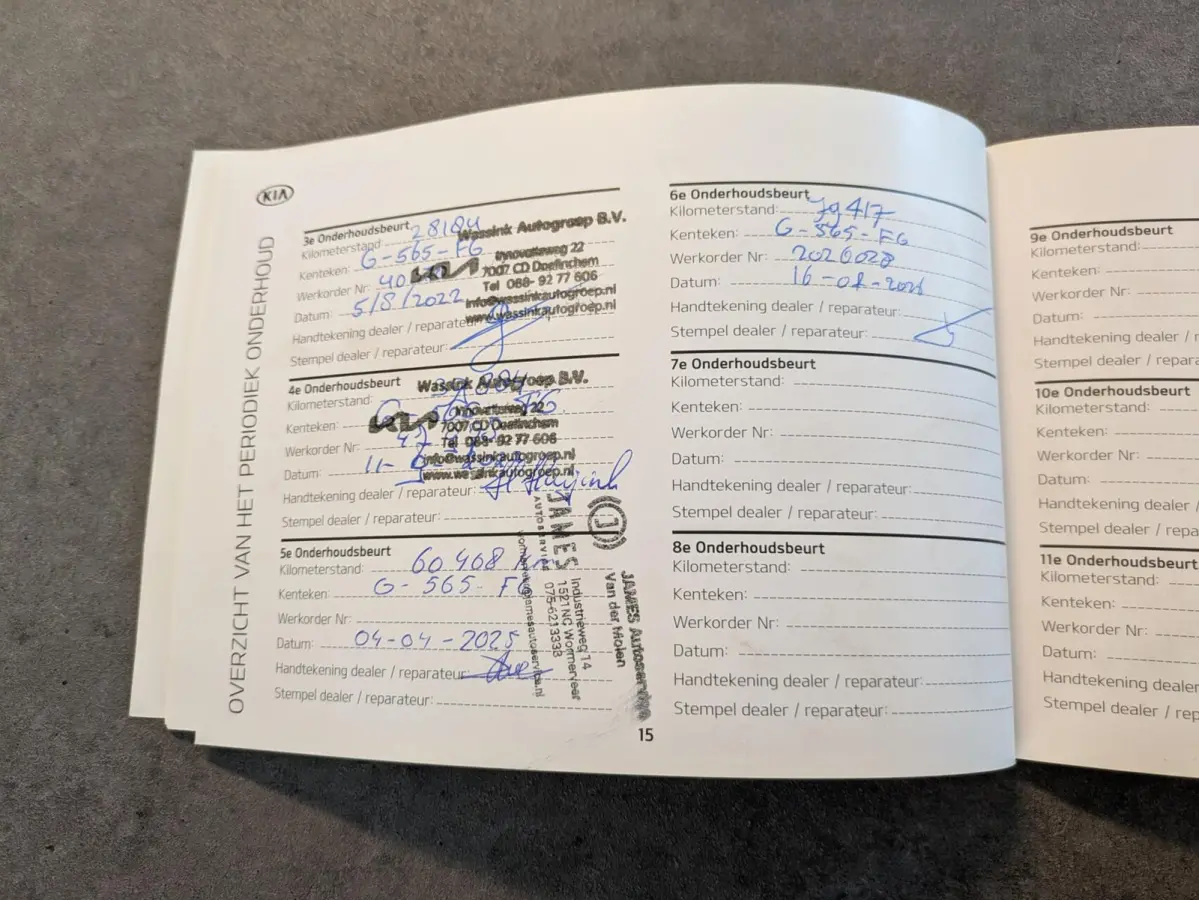 KIA
OVERZICHT VAN HET PERIODIEK ONDERHOUD
3e Onderhoudsbeurt
Kilometerstand: 28184
Kenteken: G-565-FG
Werkorder Nr: 40
Datum: 5/8/2022
Handtekening dealer / reparateur:
Stempel dealer / reparateur:
Wassink Autogroep B.V.
Innovatieweg 22
7007 CD Doetinchem
Tel 088- 92 77 606
info@wassinkautogroep.nl
www.wassinkautogroep.nl
4e Onderhoudsbeurt
Kilometerstand:
Kenteken:
Werkorder Nr: 47
Datum: 11-
Handtekening dealer / reparateur:
Stempel dealer / reparateur:
Wassink Autogroep B.V.
Innovatieweg 22
7007 CD Doetinchem
Tel 088- 92 77 606
info@wassinkautogroep.nl
www.wassinkautogroep.nl
5e Onderhoudsbeurt
Kilometerstand: 60 468 km
Kenteken: G-565-FG
Werkorder Nr:
Datum: 04-04-2025
Handtekening dealer / reparateur:
Stempel dealer / reparateur:
JAMES Autoservice
Van der Molen
Industrieweg 14
1521 NG Wormerveer
075-6213333
JAMES
AUTOSERVICE
15
6e Onderhoudsbeurt
Kilometerstand:
Kenteken: G-565-FG
Werkorder Nr: 2026028
Datum:
Handtekening dealer / reparateur:
Stempel dealer / reparateur:
7e Onderhoudsbeurt
Kilometerstand:
Kenteken:
Werkorder Nr:
Datum:
Handtekening dealer / reparateur:
Stempel dealer / reparateur:
8e Onderhoudsbeurt
Kilometerstand:
Kenteken:
Werkorder Nr:
Datum:
Handtekening dealer / reparateur:
Stempel dealer / reparateur:
9e Onderhoudsbeurt
Kilometerstand:
Kenteken:
Werkorder Nr:
Datum:
Handtekening dealer /
Stempel dealer / repara
10e Onderhoudsbeurt
Kilometerstand:
Kenteken:
Werkorder Nr:
Datum:
Handtekening dealer /
Stempel dealer / repar
11e Onderhoudsbeurt
Kilometerstand:
Kenteken:
Werkorder Nr:
Datum:
Handtekening dealer
Stempel dealer / rep